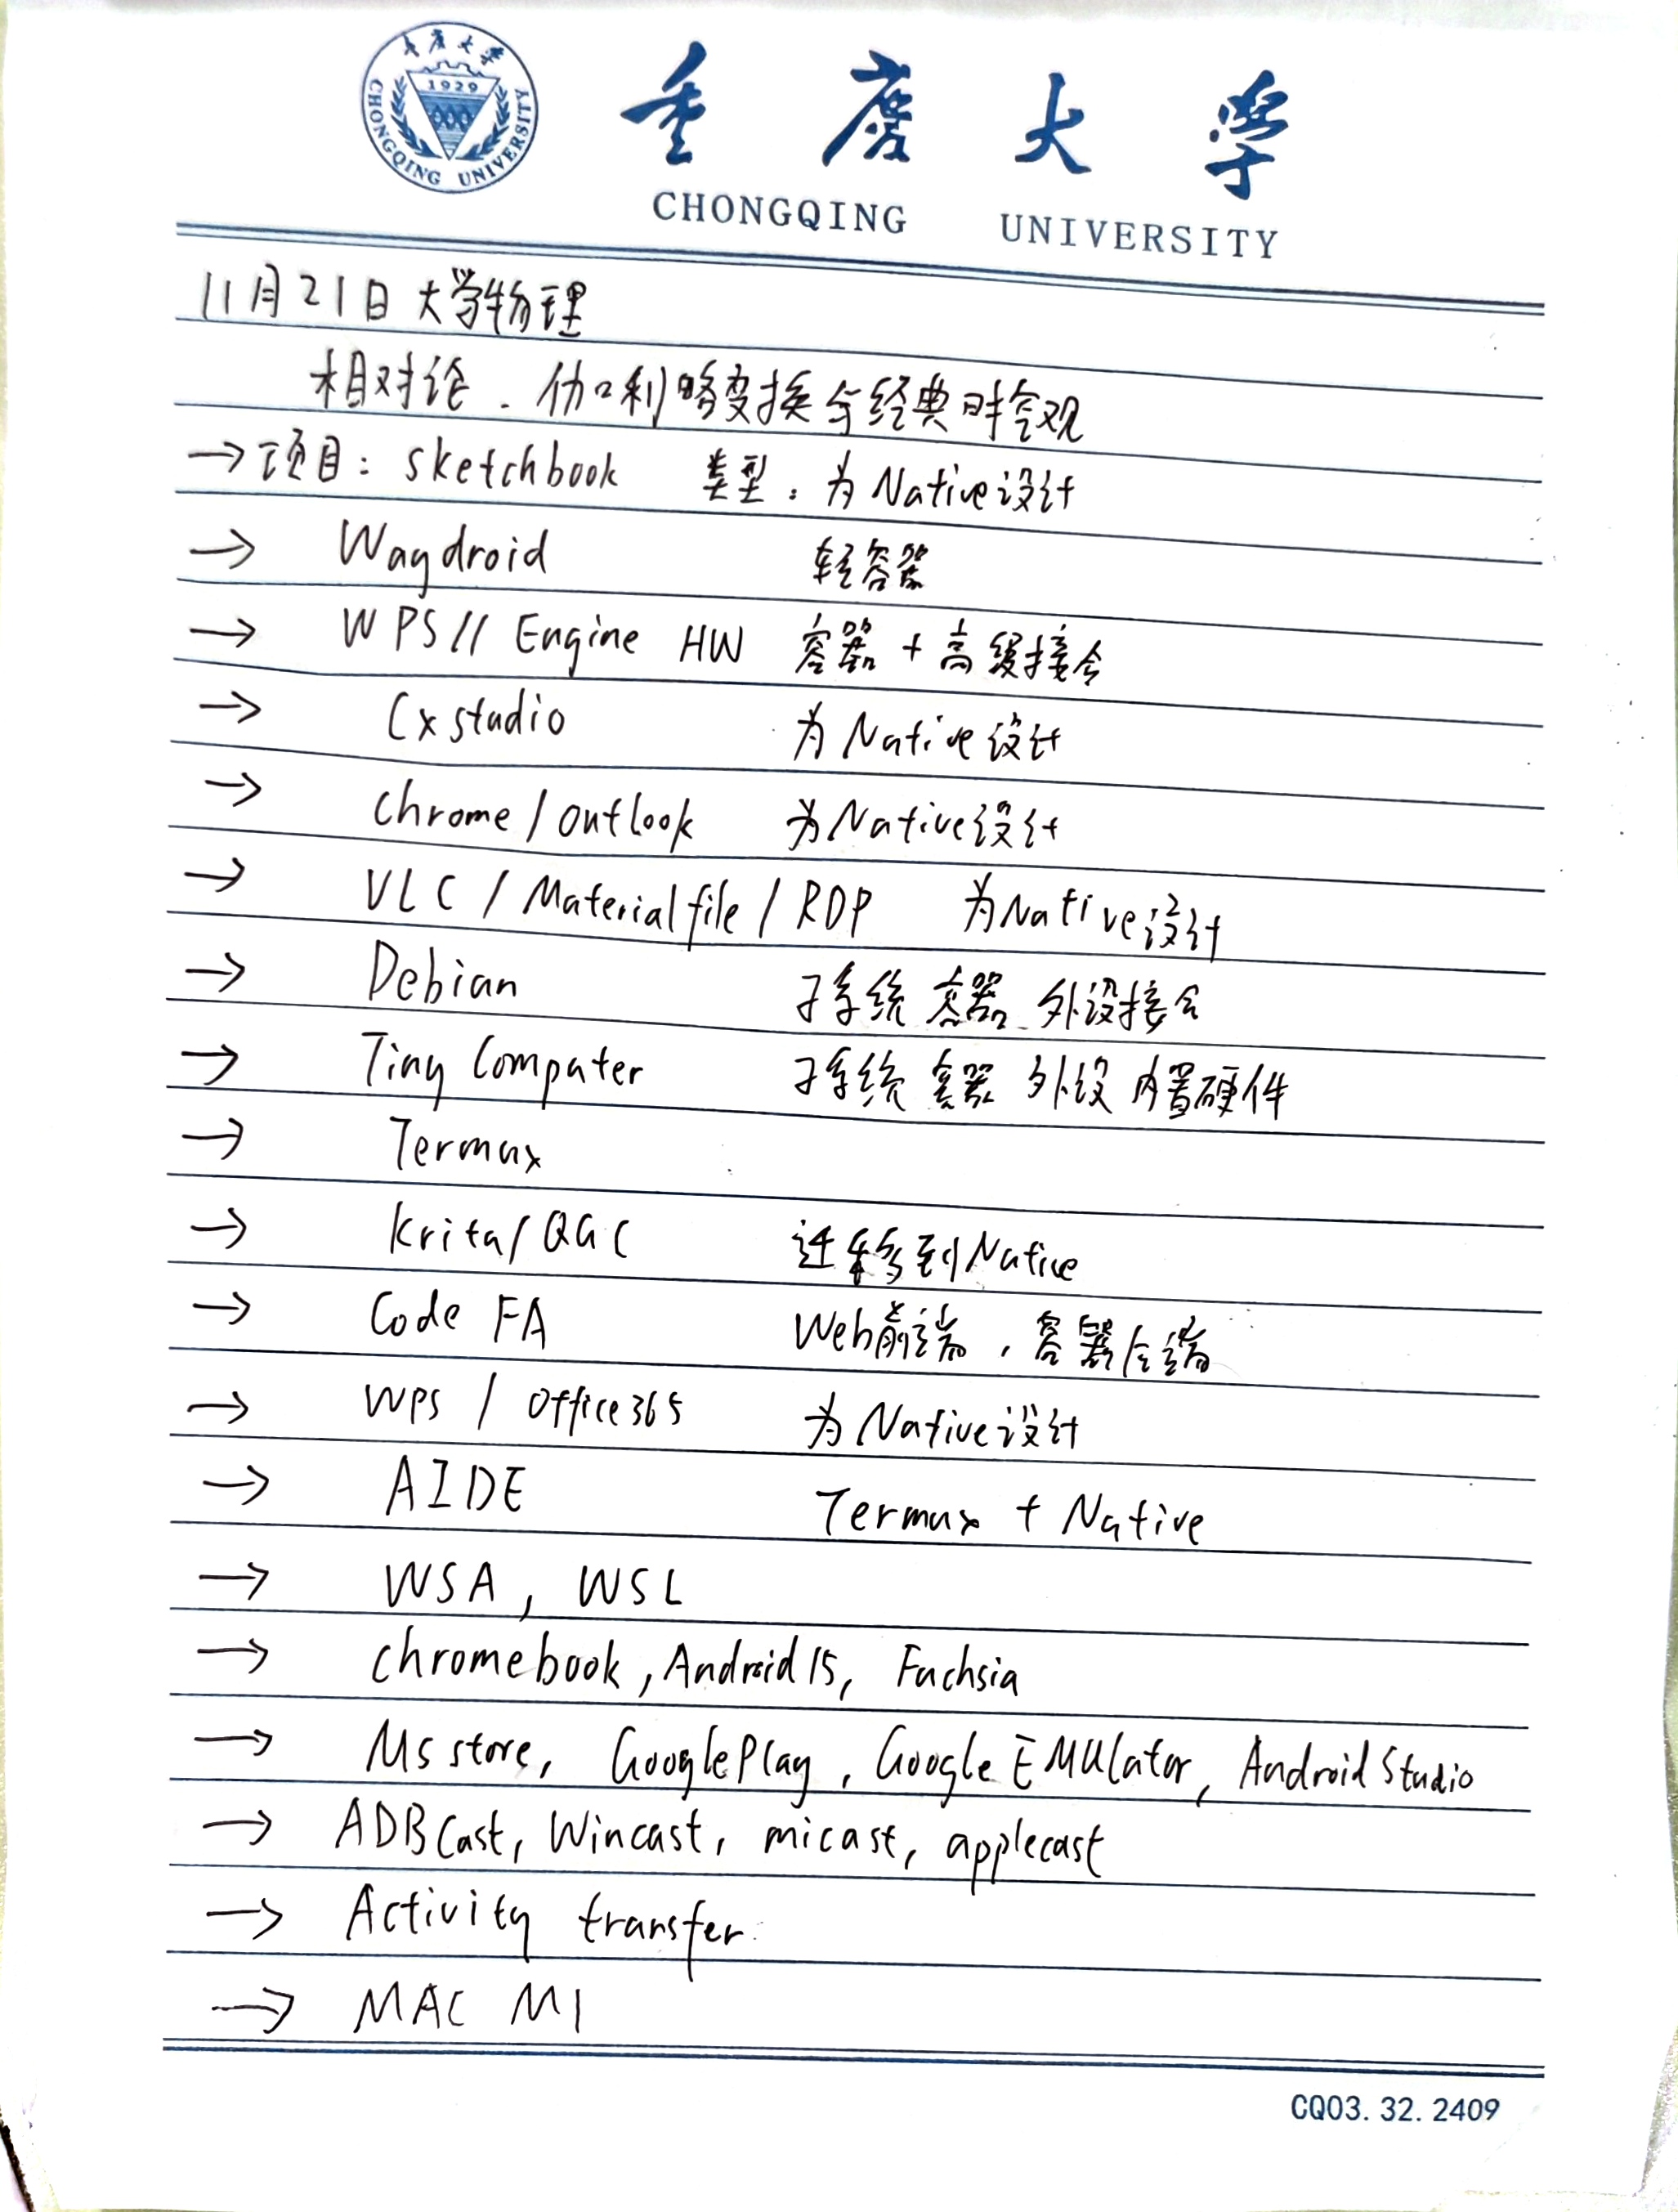 重庆大学
CHONGQING UNIVERSITY
1929
CHONGQING UNIVERSITY
11月21日 大学物理
相对论. 伽利略变换与经典时空观
→项目: sketchbook 类型: 为Native设计
→ Waydroid 轻容器
→ WPS// Engine HW 容器+高级接合
→ Cxstudio 为Native设计
→ chrome/outlook 为Native设计
→ VLC / Materialfile / RDP 为Native设计
→ Debian 子系统 容器 外设接合
→ Tiny Computer 子系统 容器 外设 内置硬件
→ Termux
→ krita/QGC 迁移到Native
→ Code FA Web前端, 容器后端
→ WPS / Office365 为Native设计
→ AIDE Termux + Native
→ WSA, WSL
→ chromebook, Android15, Fuchsia
→ Ms store, GooglePlay, Google EMUlator, Android Studio
→ ADBCast, Wincast, micast, applecast
→ Activity transfer
→ MAC M1
CQ03.32.2409